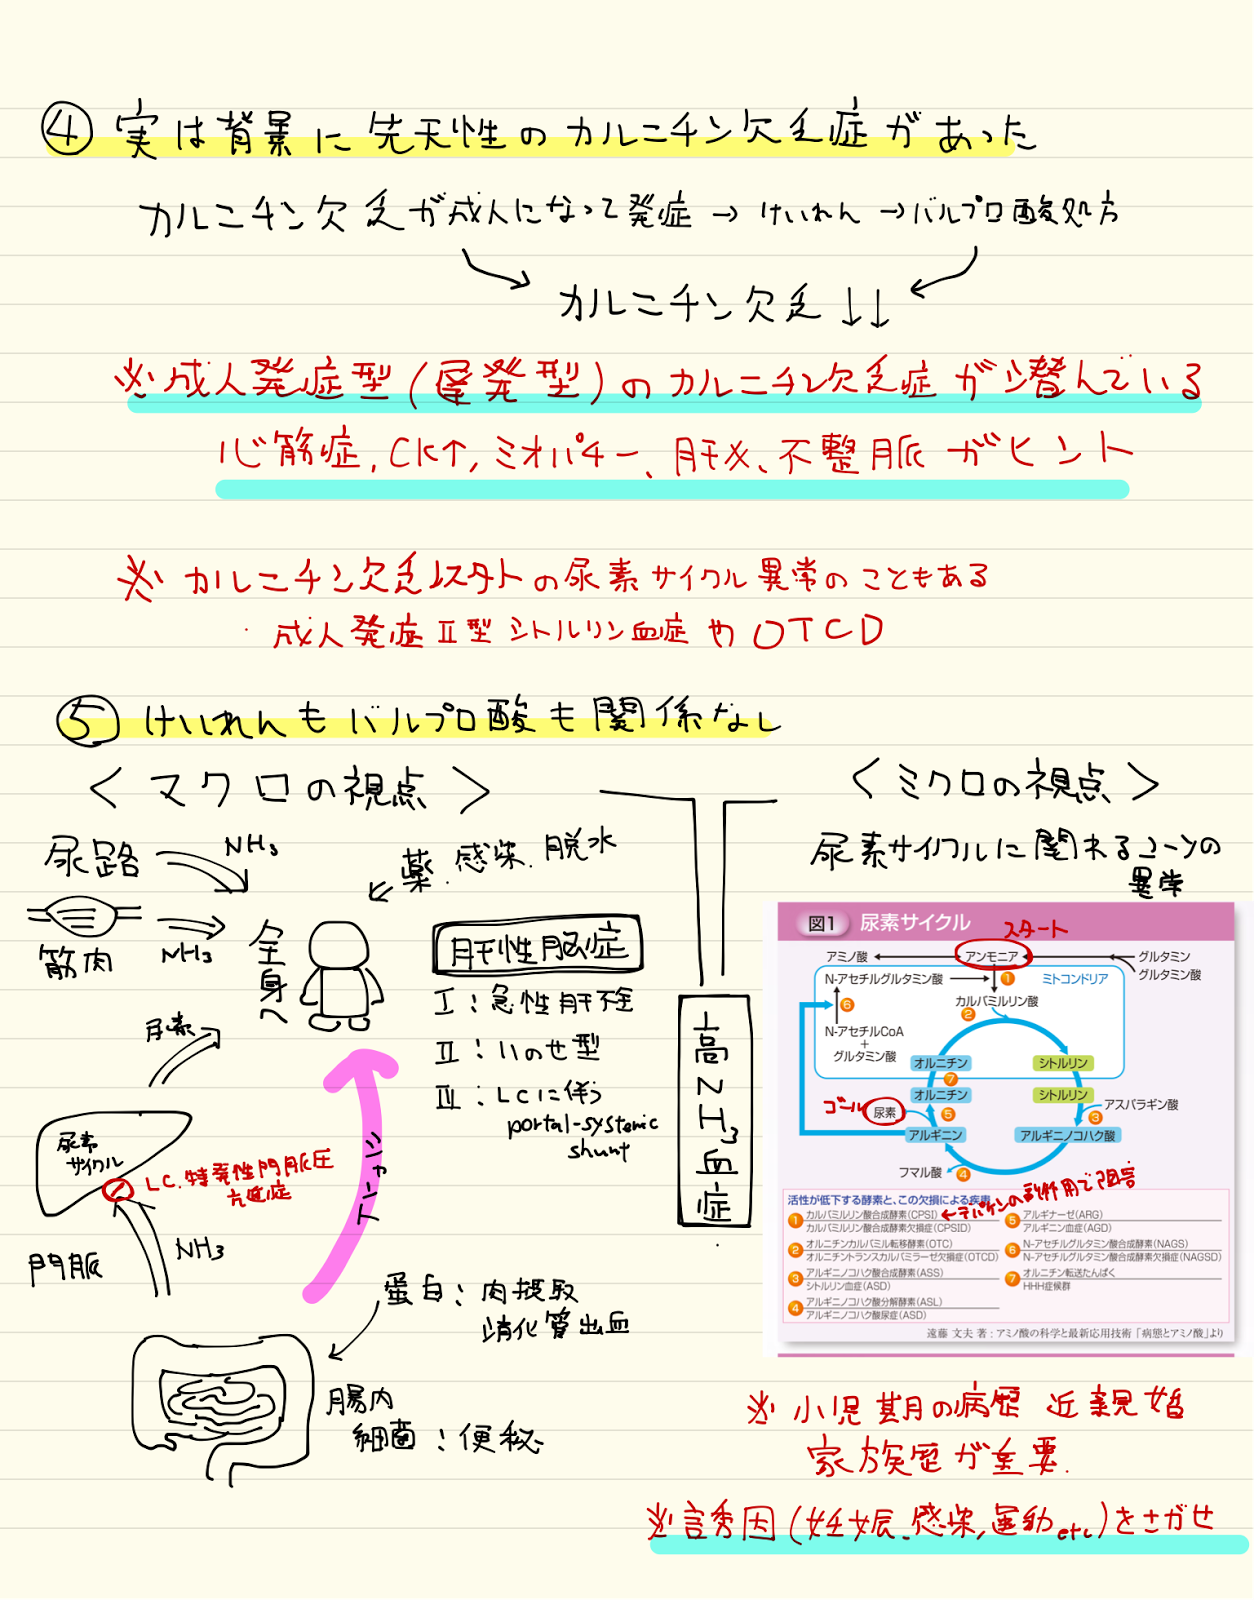 ④ 実は背景に先天性のカルニチン欠乏症があった
カルニチン欠乏が成人になって発症 → けいれん → バルプロ酸処方
カルニチン欠乏 ↓↓
※成人発症型(遅発型)のカルニチン欠乏症が潜んでいる
心筋症, CK↑, ミオパチー、肝×、不整脈がヒント
※ カルニチン欠乏以外の尿素サイクル異常のこともある
成人発症Ⅱ型シトルリン血症やOTCD
⑤ けいれんもバルプロ酸も関係なし
<マクロの視点>
尿路
NH₃
筋肉
NH₃
全身へ
薬. 感染. 脱水
肝性脳症
Ⅰ:急性肝不全
Ⅱ:いのせ型
Ⅲ:LCに伴う
portal-systemic
shunt
尿素
尿素
サイクル
LC. 特発性門脈圧
亢進症
門脈
NH₃
シャント
蛋白:肉摂取
消化管出血
腸内
細菌:便秘
高NH₃血症
<ミクロの視点>
尿素サイクルに関わる
異常
図1 尿素サイクル
スタート
アミノ酸
アンモニア
グルタミン
グルタミン酸
N-アセチルグルタミン酸
①
ミトコンドリア
カルバミルリン酸
⑥
②
N-アセチルCoA
+
グルタミン酸
オルニチン
シトルリン
⑦
オルニチン
シトルリン
ゴール
尿素
⑤
③
アスパラギン酸
アルギニン
アルギニノコハク酸
フマル酸
④
活性が低下する酵素と、この欠損による疾患
←デパケンの副作用で阻害
① カルバミルリン酸合成酵素(CPSI)
カルバミルリン酸合成酵素欠損症(CPSID)
② オルニチンカルバミル転移酵素(OTC)
オルニチントランスカルバミラーゼ欠損症(OTCD)
③ アルギニノコハク酸合成酵素(ASS)
シトルリン血症(ASD)
④ アルギニノコハク酸分解酵素(ASL)
アルギニノコハク酸尿症(ASD)
⑤ アルギナーゼ(ARG)
アルギニン血症(AGD)
⑥ N-アセチルグルタミン酸合成酵素(NAGS)
N-アセチルグルタミン酸合成酵素欠損症(NAGSD)
⑦ オルニチン転送たんぱく
HHH症候群
遠藤 文夫 著:アミノ酸の科学と最新応用技術「病態とアミノ酸」より
※ 小児期の病歴 近親婚
家族歴が重要.
※誘因(妊娠、感染, 運動etc)をさがせ